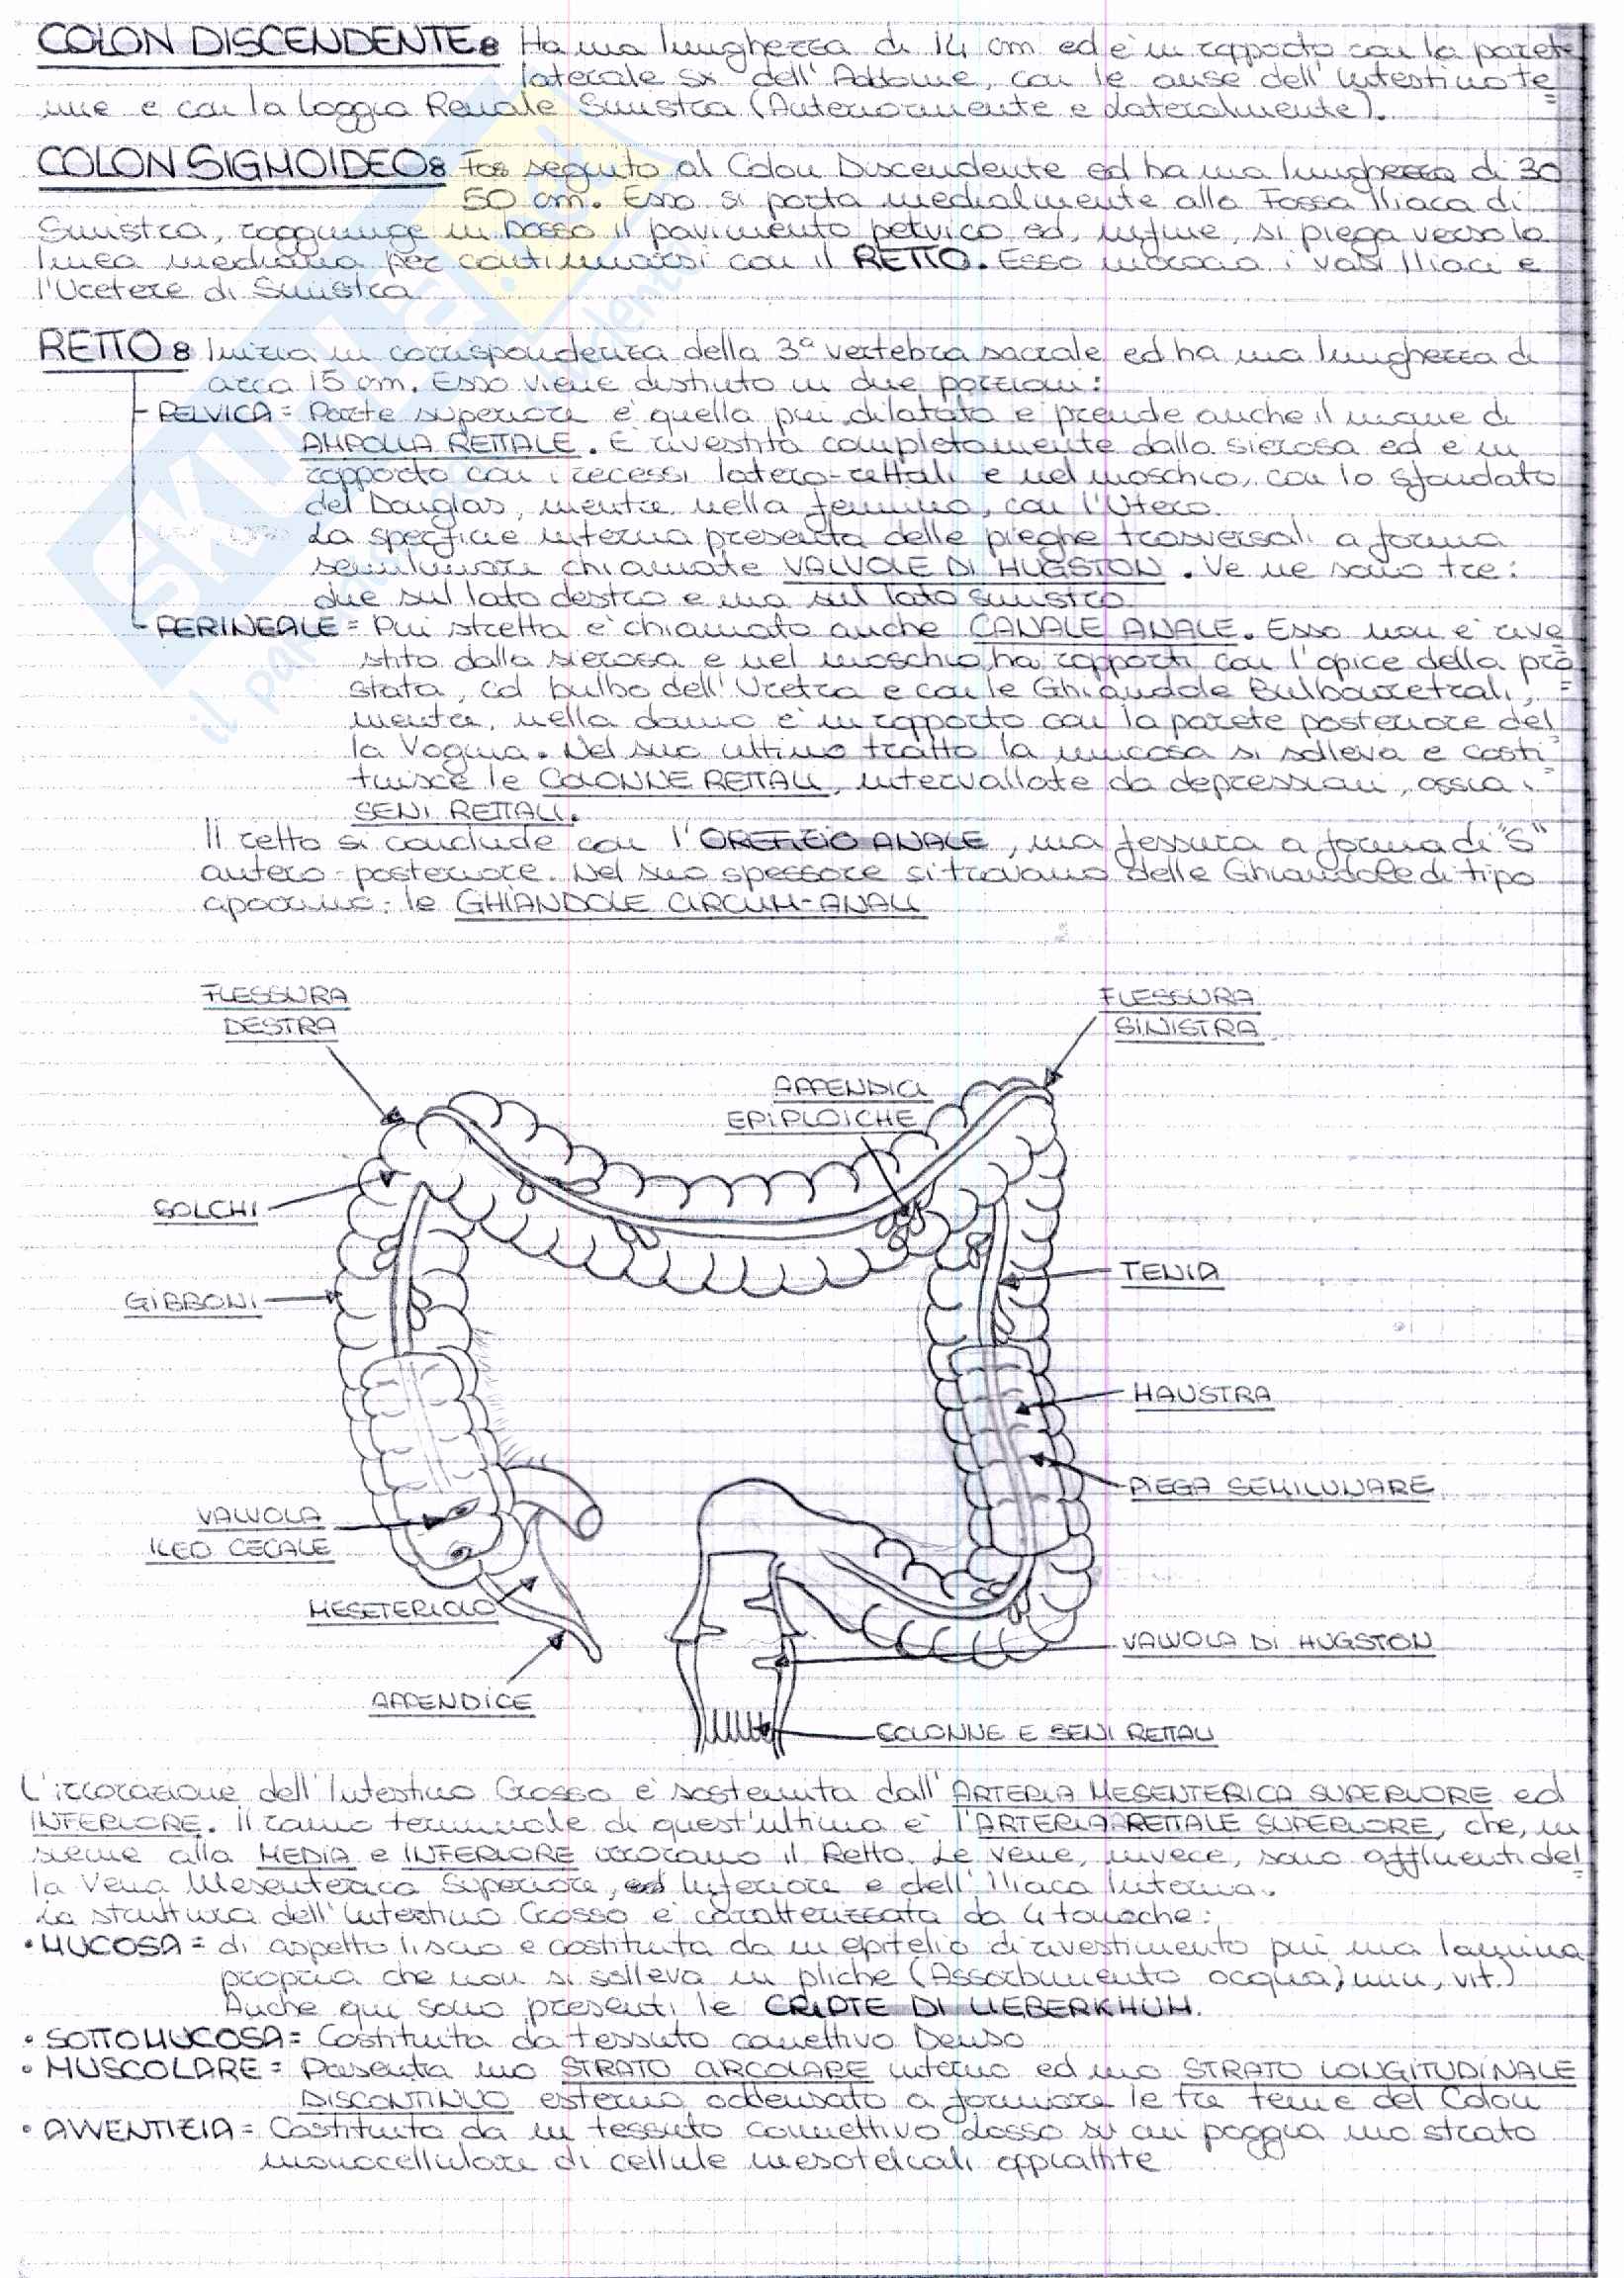 COLON DISCENDENTE: Ha una lunghezza di 14 cm ed è in rapporto con la parete
laterale sx dell'Addome, con le anse dell'Intestino te=
nue e con la loggia Renale Sinistra (Anteriormente e Lateralmente).
COLON SIGMOIDEO: Fa seguito al Colon Discendente ed ha una lunghezza di 30
50 cm. Esso si porta medialmente alla Fossa Iliaca di
Sinistra, raggiunge in basso il pavimento pelvico ed, infine, si piega verso la
linea mediana per continuarsi con il RETTO. Esso incrocia i vasi Iliaci e
l'Uretere di Sinistra
RETTO: Inizia in corrispondenza della 3ª vertebra sacrale ed ha una lunghezza di
circa 15 cm. Esso viene distinto in due porzioni:
- PELVICA = Parte superiore è quella più dilatata e prende anche il nome di
AMPOLLA RETTALE. È rivestita completamente dalla sierosa ed è in
rapporto con i recessi latero-rettali e nel maschio, con lo sfondato
del Douglas, mentre nella femmina, con l'Utero.
La sperficie interna presenta delle pieghe trasversali a forma
semilunare chiamate VALVOLE DI HUGSTON. Ve ne sono tre:
due sul lato destro e una sul lato sinistro
- PERINEALE = Più stretta è chiamata anche CANALE ANALE. Esso non è rive
stito dalla sierosa e nel maschio, ha rapporti con l'apice della pro=
stata, col bulbo dell'Uretra e con le Ghiandole Bulbouretrali,
mentre, nella donna è in rapporto con la parete posteriore del=
la Vagina. Nel suo ultimo tratto la mucosa si solleva e costi=
tuisce le COLONNE RETTALI, intervallate da depressioni, ossia i
SENI RETTALI.
Il retto si conclude con l'OREFIZIO ANALE, una fessura a forma di "S"
antero-posteriore. Nel suo spessore si trovano delle Ghiandole di tipo
apocrino: le GHIANDOLE CIRCUM-ANALI
FLESSURA
DESTRA
FLESSURA
SINISTRA
APPENDICI
EPIPLOICHE
SOLCHI
TENIA
GIBBONI
HAUSTRA
PIEGA SEMILUNARE
VALVOLA
ILEO CECALE
MESETERIOLO
VALVOLA DI HUGSTON
APPENDICE
COLONNE E SENI RETTALI
L'irrorazione dell'Intestino Crosso è sostenuta dall'ARTERIA MESENTERICA SUPERIORE ed
INFERIORE. Il ramo terminale di quest'ultima è l'ARTERIA RETTALE SUPERIORE, che, in
sieme alla MEDIA e INFERIORE irrorano il Retto. Le vene, invece, sono affluenti del=
la Vena Mesenterica Superiore, ed Inferiore e dell'Iliaca Interna.
La struttura dell'Intestino Crosso è caratterizzata da 4 tonache:
• MUCOSA = di aspetto liscio e costituita da un epitelio di rivestimento più una lamina
propria che non si solleva in pliche (Assorbimento acqua, min, vit.)
Anche qui sono presenti le CRIPTE DI LIEBERKHUM.
• SOTTOMUCOSA = Costituita da tessuto connettivo Denso
• MUSCOLARE = Presenta uno STRATO CIRCOLARE interno ed uno STRATO LONGITUDINALE
DISCONTINUO esterno addensato a formare le tre tenie del Colon
• AVVENTIZIA = Costituita da un tessuto connettivo Lasso su cui poggia uno strato
monocellulare di cellule mesoteliali appiattite
SKUOLA.net